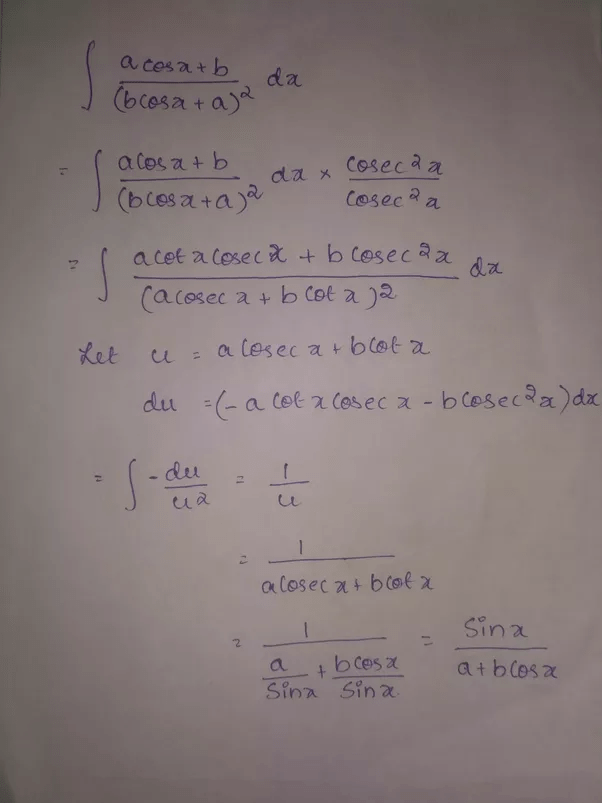 ∫ (a cosx + b)/(b cosx + a)² dx
= ∫ (a cosx + b)/(b cosx + a)² dx × cosec²x/cosec²x
= ∫ (a cot x cosec x + b cosec²x)/(a cosec x + b cot x)² dx
Let u = a cosec x + b cot x
du = (- a cot x cosec x - b cosec²x) dx
= ∫ -du/u² = 1/u
= 1/(a cosec x + b cot x)
= 1/(a/Sinx + b cosx/Sinx) = Sinx/(a + b cosx)